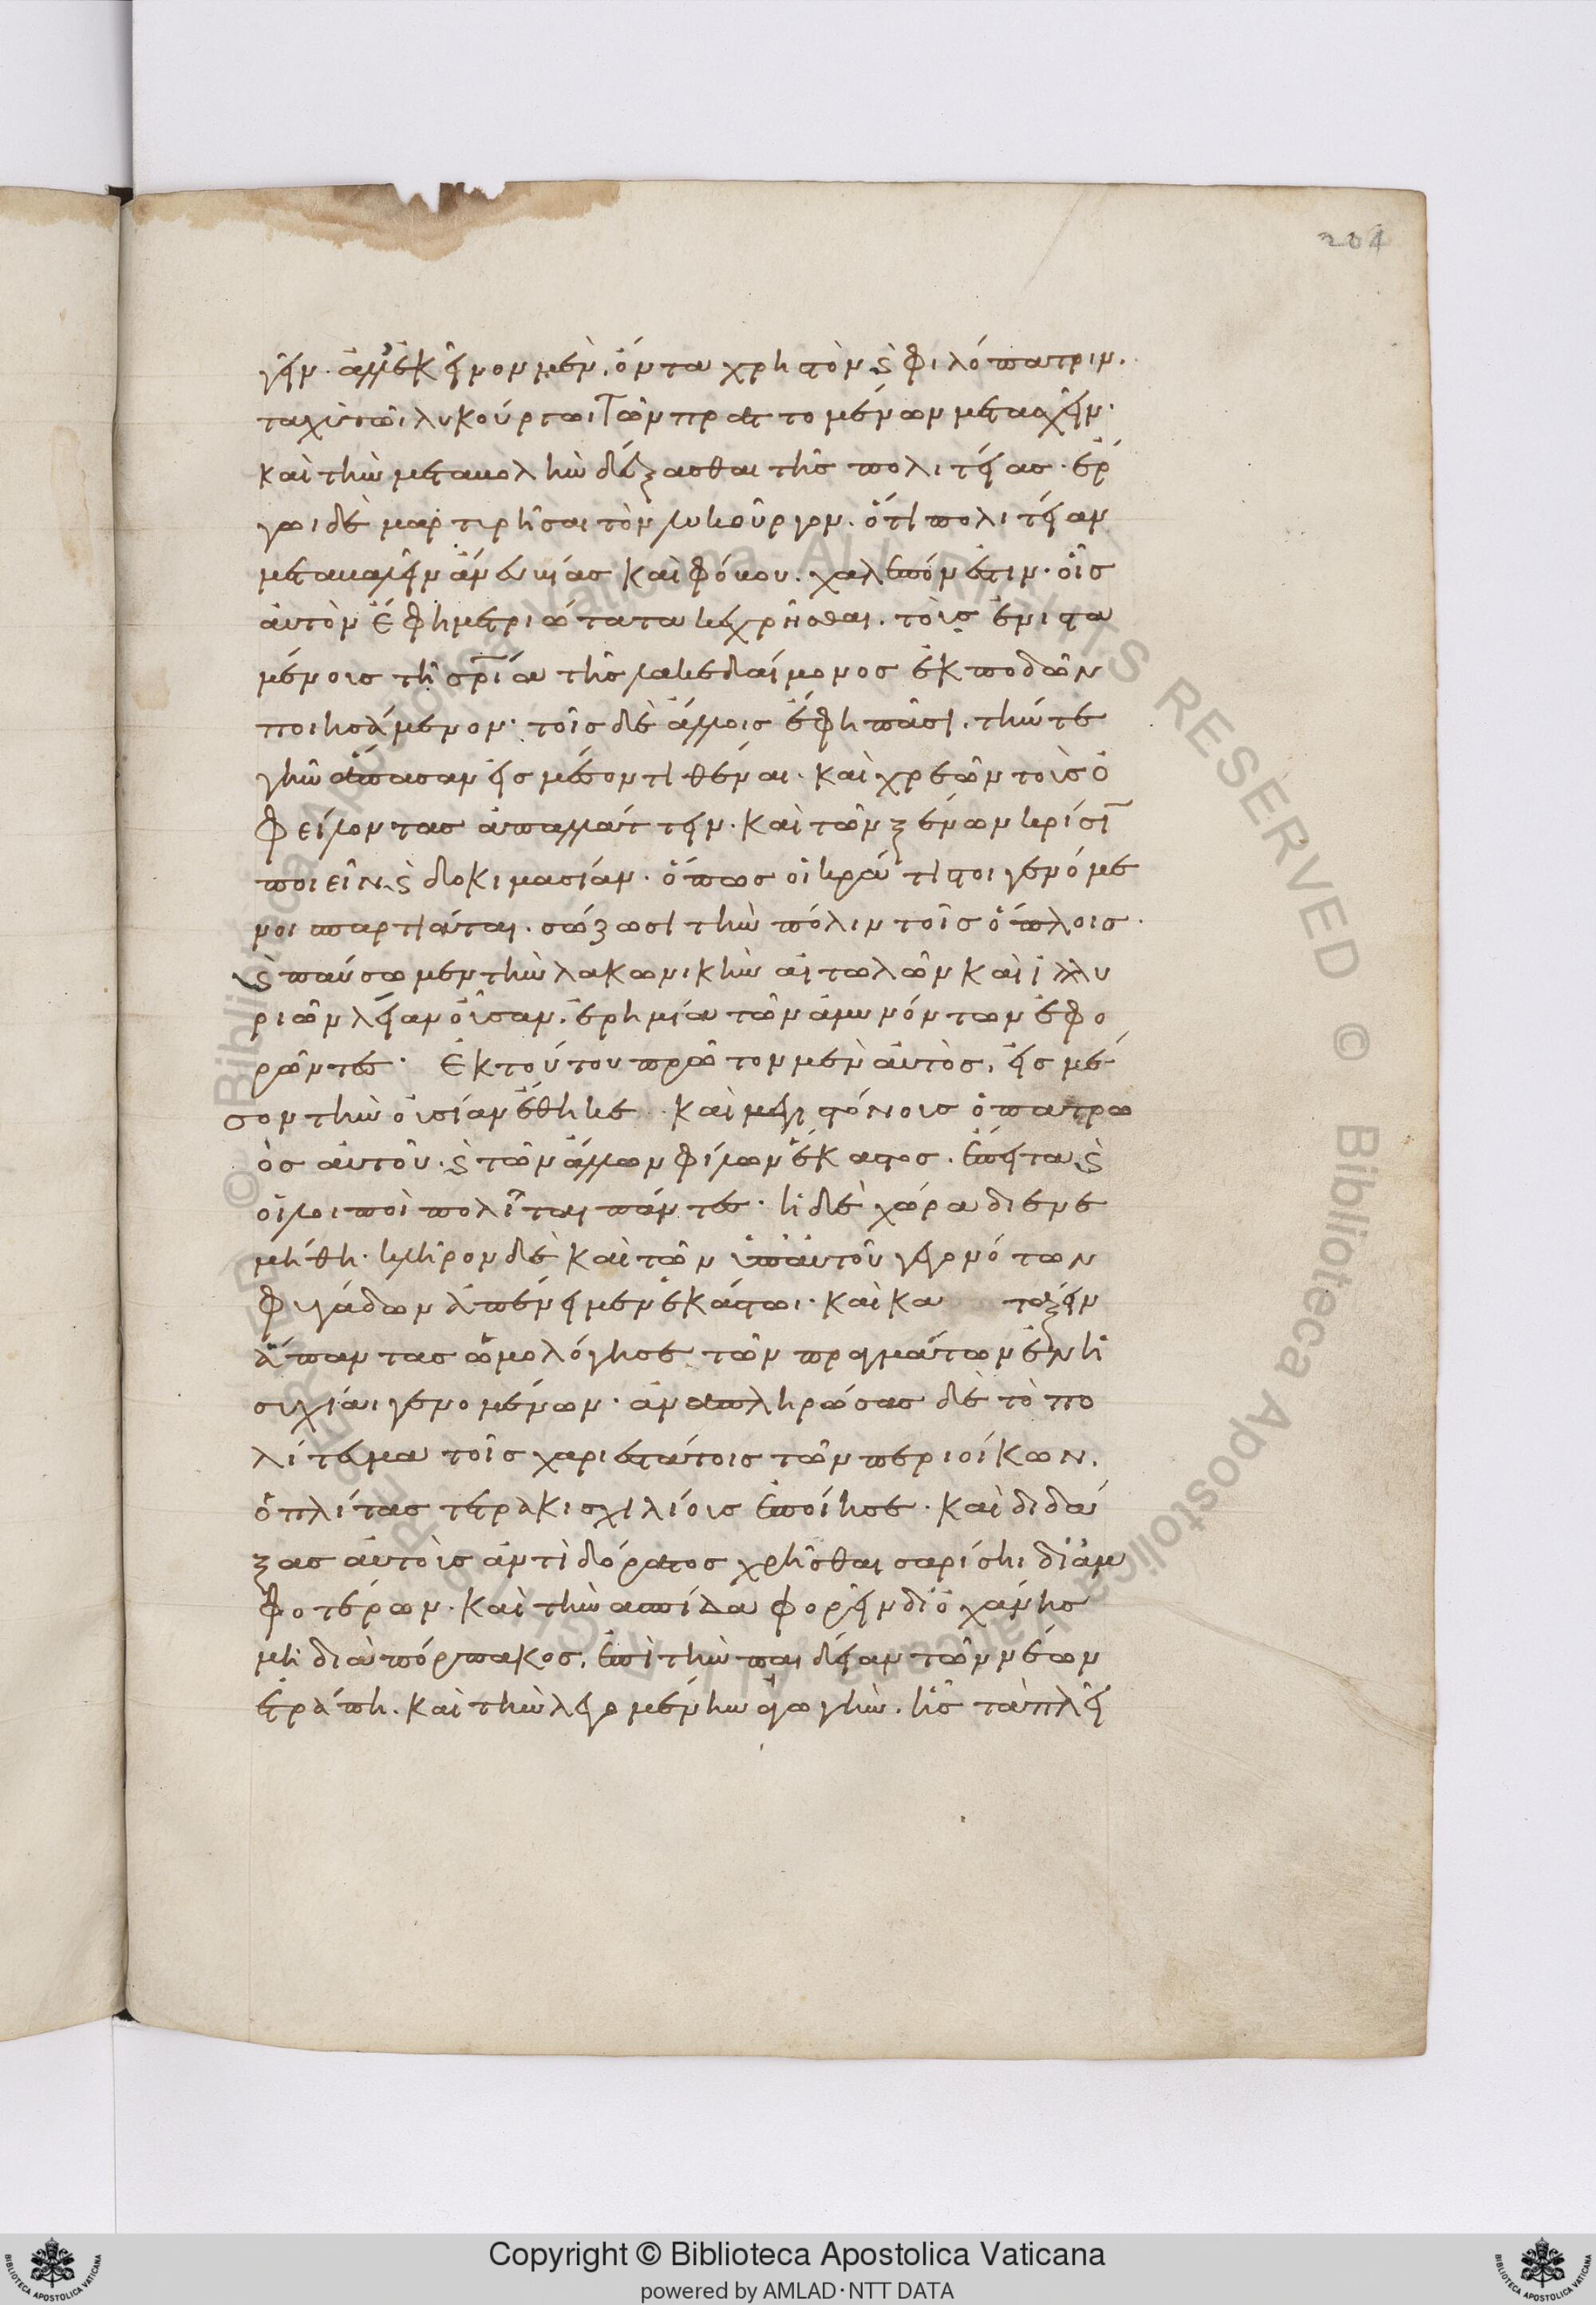 204
γεῖν· ἀλλ' ἐκεῖνον μὲν, ὄντα χρηστὸν ϗ φιλόπατριν.
ταχὺ τῶι λυκούργωι τῶν πραττομένων μετασχεῖν·
καὶ τὴν μεταβολὴν δέξασθαι τῆς πολιτείας· ἔρ
γωι δὲ μαρτυρῆσαι τὸν λυκοῦργον. ὅτι πολιτείαν
μεταβαλεῖν ἄνευ βίας καὶ φόβου. χαλεπόν ἐστιν· οἷς
αὐτὸν ἔφη μετριώτατα κεχρῆσθαι. τοὺς ἐνιστα
μένους τῆ σρία τῆς λακεδαίμονος ἐκποδὼν
ποιησάμενον· τοῖς δὲ ἄλλοις ἔφη πᾶσι. τήν τε
γῆν ἅπασαν εἰς μέσον τιθέναι. καὶ χρεῶν τοὺς ὀ
φείλοντας ἀπαλλάττειν. καὶ τῶν ξένων κρίσι
ποιεῖν ϗ δοκιμασίαν. ὅπως οἱ κράτιστοι γενόμε
νοι σπαρτιᾶται. σώζωσι τὴν πόλιν τοῖς ὅπλοις.
ϗ παύσωμεν τὴν λακωνικὴν αἰτωλῶν καὶ ἰλλυ
ριῶν λείαν οὖσαν. ἐρημία τῶν ἀμυνόντων ἐφο
ρῶντες· Ἐκ τούτου πρῶτον μὲν αὐτὸς, εἰς μέ
σον τὴν οὐσίαν ἔθηκε. καὶ μεγιστόνους ὁ πατρω
ὸς αὐτοῦ. ϗ τῶν ἄλλων φίλων ἕκαστος. ἔπειτα ϗ
οἱ λοιποὶ πολῖται πάντες· ἡ δὲ χώρα διενε
μήθη. κλῆρον δὲ καὶ τῶν ὑπ' αὐτοῦ γεγονότων
φυγάδων ἀπένειμεν ἑκάστωι. καὶ κα τάξειν
ἅπαντας ὡμολόγησε τῶν πραγμάτων ἐν ἡ
συχίαι γενομένων. ἀναπληρώσας δὲ τὸ πο
λίτευμα τοῖς χαριεστάτοις τῶν περιοίκων.
ὁπλίτας τετρακισχιλίους ἐποίησε. καὶ διδά
ξας αὐτοὺς ἀντὶ δόρατος χρῆσθαι σαρίσηι δι' ἀμ
φοτέρων. καὶ τὴν ἀσπίδα φορεῖν δι' ὀχάνης
μὴ διὰ πόρπακος. ἐπὶ τὴν παιδείαν τῶν νέων
ἐτράπη. καὶ τὴν λεγομένην ἀγωγὴν. ἧς τὰ πλεῖ